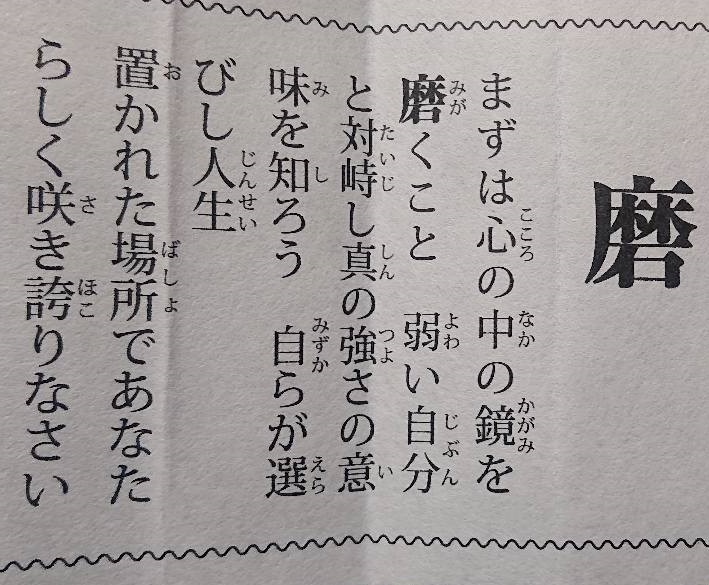 磨
まずは心の中の鏡を
磨くこと　弱い自分
と対峙し真の強さの意
味を知ろう　自らが選
びし人生
置かれた場所であなた
らしく咲き誇りなさい